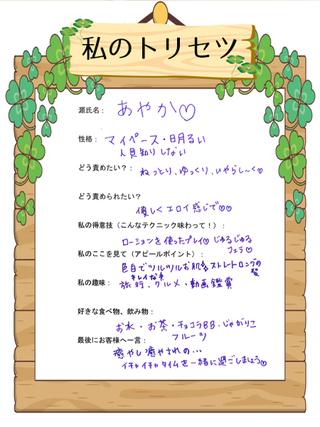 私のトリセツ
源氏名： あやか♡
性格： マイペース・明るい
人見知りしない
どう責めたい？： ねっとり、ゆっくり、いやらし〜く♡
どう責められたい？
優しくエロイ感じで♡♡
私の得意技（こんなテクニック味わって！）：
ローションを使ったプレイ♡じゅるじゅる
フェラ♡
私のここを見て（アピールポイント）： 色白でツルツルお肌&ストレートロングの
キレイな 髪
私の趣味： 旅行、グルメ・動画鑑賞
好きな食べ物、飲み物：
お水・お茶・チョコラBB・じゃがりこ
フルーツ
最後にお客様へ一言：
癒やし癒やされの...
イチャイチャタイムを一緒に過ごしましょう♡